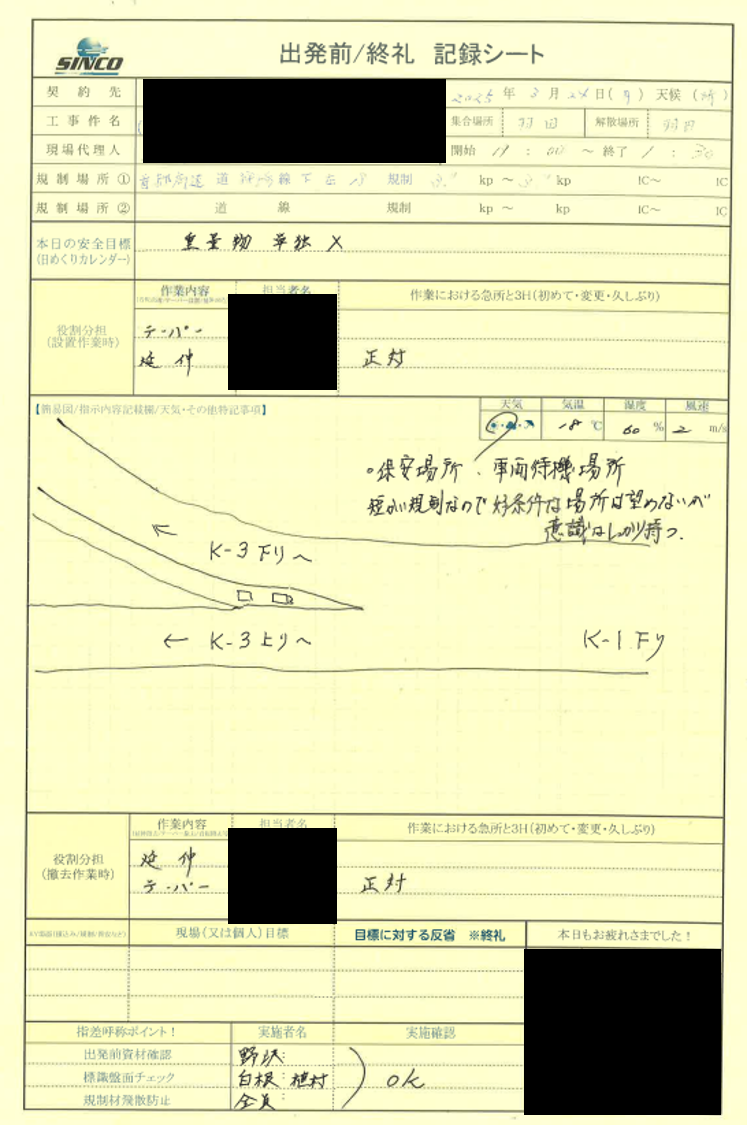 SINCO
出発前/終礼 記録シート
契約先
2025年3月24日(月) 天候(晴)
工事件名
集合場所 羽田 解散場所 羽田
現場代理人
開始 19:00 ～終了 1:30
規制場所① 首都高速道 線下 規制 kp～ kp IC～ IC
規制場所② 道 線 規制 kp～ kp IC～ IC
本日の安全目標
(日めくりカレンダー)
重量物 単独 X
作業内容 担当者名 作業における急所と3H(初めて・変更・久しぶり)
役割分担
(設置作業時)
テーパー
延伸 正対
【簡易図/指示内容記載欄/天気・その他特記事項】
天気 気温 湿度 風速
18℃ 60% 2m/s
○保安場所、車両待機場所
短かい規制なので好条件な場所は望めないが
意識はしっかり持つ.
K-3下り～
← K-3上り～ K-1下り
作業内容 担当者名 作業における急所と3H(初めて・変更・久しぶり)
役割分担
(撤去作業時)
延伸
テーパー 正対
現場(又は個人)目標 目標に対する反省 ※終礼 本日もお疲れさまでした!
指差呼称ポイント! 実施者名 実施確認
出発前資材確認 野沢
標識盤面チェック 白根 植村 OK
規制材飛散防止 全員